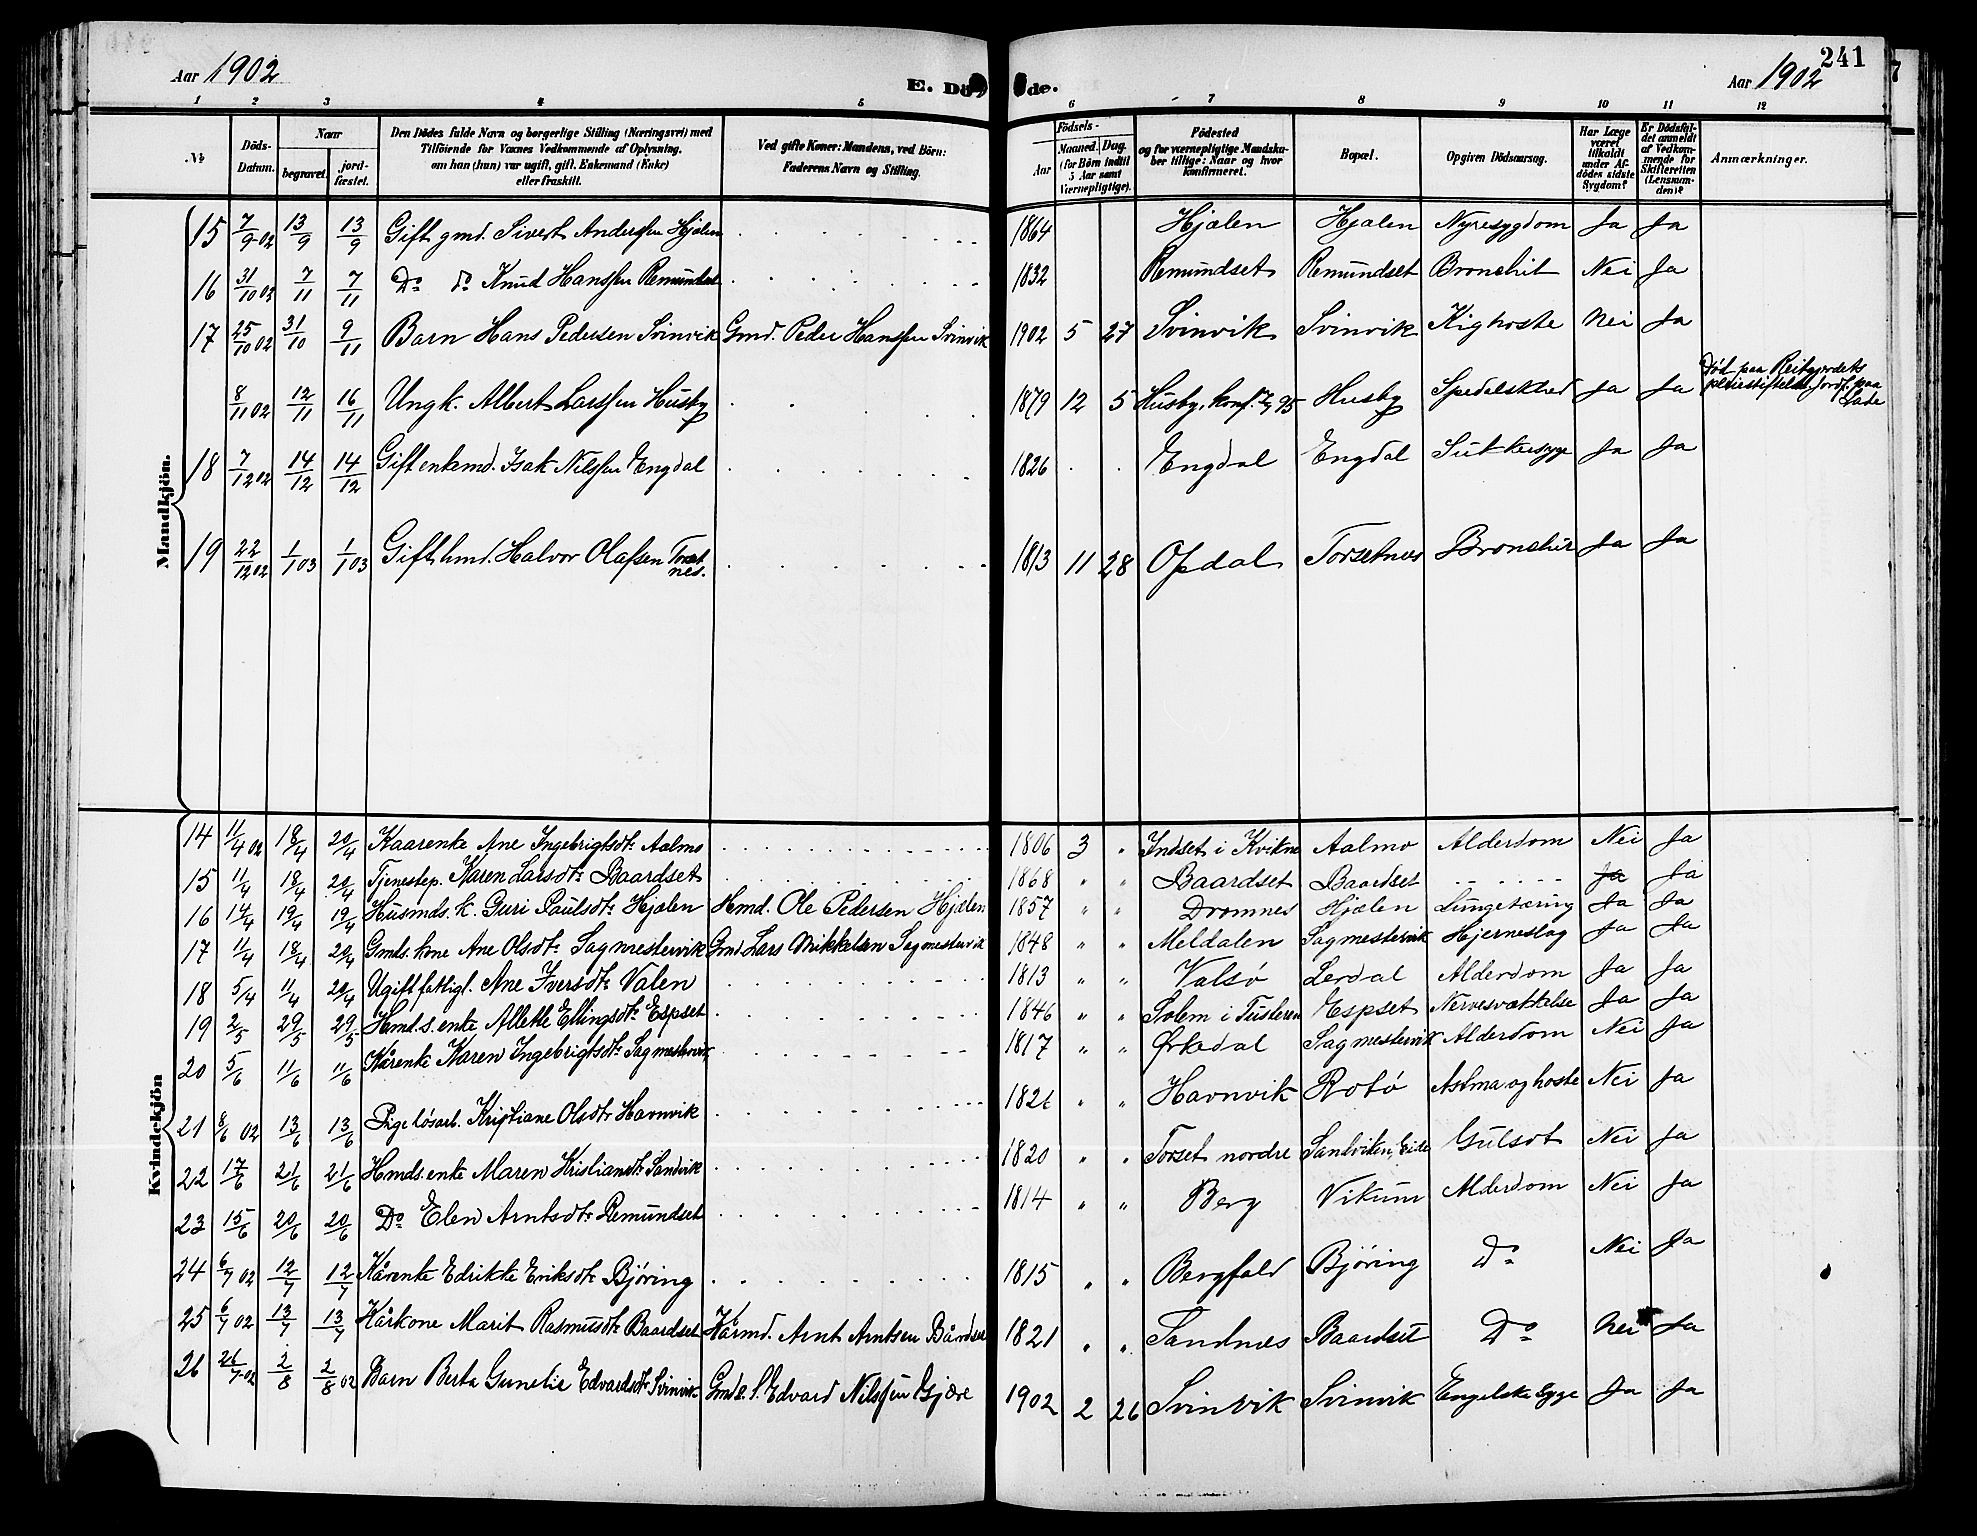 241
Aar 1902 E. Döde. Aar 1902
1 2 3 4 5 6 7 8 9 10 11 12
№ Döds-Datum. Naar begravet. jordfæstet. Den Dödes fulde Navn og borgerlige Stilling (Næringsvei) med Tilföiende for Voxnes Vedkommende af Oplysning, om han (hun) var ugift, gift, Enkemand (Enke) eller fraskilt. Ved gifte Koner: Mandens, ved Börn: Faderens Navn og Stilling. Födsels- Aar Maaned. Dag (for Börn indtil 5 Aar samt Værnepligtige). Födested og for værnepligtige Mandskaber tillige: Naar og hvor konfirmeret. Bopæl. Opgiven Dödsaarsag. Har Læge været tilkaldt under Afdödes sidste Sygdom? Er Dödsfaldet anmeldt af Vedkommende for Skifteretten (Lensmanden)? Anmærkninger.
Mandkjön.
15 7/9 02 13/9 13/9 Gift gmd. Sivert Anderssen Hjælen 1864 Hjælen Hjælen Nyresygdom Ja Ja
16 31/10 02 7/11 7/11 Do do Knud Hanssen Remundset 1832 Remundset Remundset Bronchit Nei Ja
17 25/10 02 31/10 9/11 Barn Hans Pedersen Svinvik Gmd. Peder Hanssen Svinvik 1902 5 27 Svinvik Svinvik Kighoste Nei Ja
8/11 02 12/11 16/11 Ungk. Albert Larssen Husby 1879 12 5 Husby, konf. 95 Husby Spedalskhed Ja Ja Död paa Reitgjerdets pleiestiftelse. Jordf. paa Lade
18 7/12 02 14/12 14/12 Gift enkemd. Isak Nilssen Engdal 1826 Engdal Engdal Sukkersyge Ja Ja
19 22/12 02 1/1 03 1/1 03 Gift hmd. Halvor Olafsen Torsetnes. 1813 11 28 Opdal Torsetnes Bronchit Ja Ja
Kvindekjön
14 11/4 02 18/4 20/4 Kaarenke Ane Ingebrigtsdt. Aalmo 1806 3 " Indset i Kvikne Aalmo Alderdom Nei Ja
15 11/4 18/4 20/4 Tjenestep. Karen Larsdt. Baardset 1868 " " Baardset Baardset Ja Ja
16 14/4 19/4 19/4 Husmds. k. Guri Paulsdt. Hjælen Hmd. Ole Pedersen Hjælen 1857 " " Dromnes Hjælen Lungetæring Ja Ja
17 11/4 18/4 20/4 Gmds. kone Ane Olsdt. Sagmestervik Gmd. Lars Mikkelsen Sagmestervik 1848 " " Meldalen Sagmestervik Hjerneslag Ja Ja
18 5/4 11/4 20/4 Ugift fattigl. Ane Iversdt. Valen 1813 " " Valsö Lerdal Alderdom Ja Ja
19 2/5 29/5 29/5 Hmd.s. enke Allette Ellingsdt. Espset 1846 " " Solem i Tusteren Espset Nervesvækkelse Ja Ja
20 5/6 11/6 11/6 Kårenke Karen Ingebrigtsdt. Sagmestervik 1817 " " Ørkedal Sagmestervik Alderdom Nei Ja
21 8/6 02 13/6 13/6 Pige lösarb. Kristiane Olsdtr Havnvik 1826 " " Havnvik Rotö Astma og hoste Nei Ja
22 17/6 21/6 21/6 Hmds. enke Maren Kristiansdt. Sandvik 1820 " " Torset nordre Sandviken, Eide Gulsot Nei Ja
23 15/6 20/6 20/6 Do Elen Arntsdt. Remundset 1814 " " Berg Vikum Alderdom Nei Ja
24 6/7 02 12/7 12/7 Kårenke Edrikke Eriksdt. Björing 1815 " " Bergfald Björing Do Nei Ja
25 6/7 02 13/7 13/7 Kårkone Marit Rasmusdt. Baardset Kårmd. Arnt Arntsen Bårdset 1821 " " Sandnes Baardset Do Nei Ja
26 26/7 02 2/8 2/8 02 Barn Berta Gunelie Edvardsdt. Svinvik Gmd. s. Edvard Nilssen Gjære 1902 2 26 Svinvik Svinvik Engelske syge Ja Ja